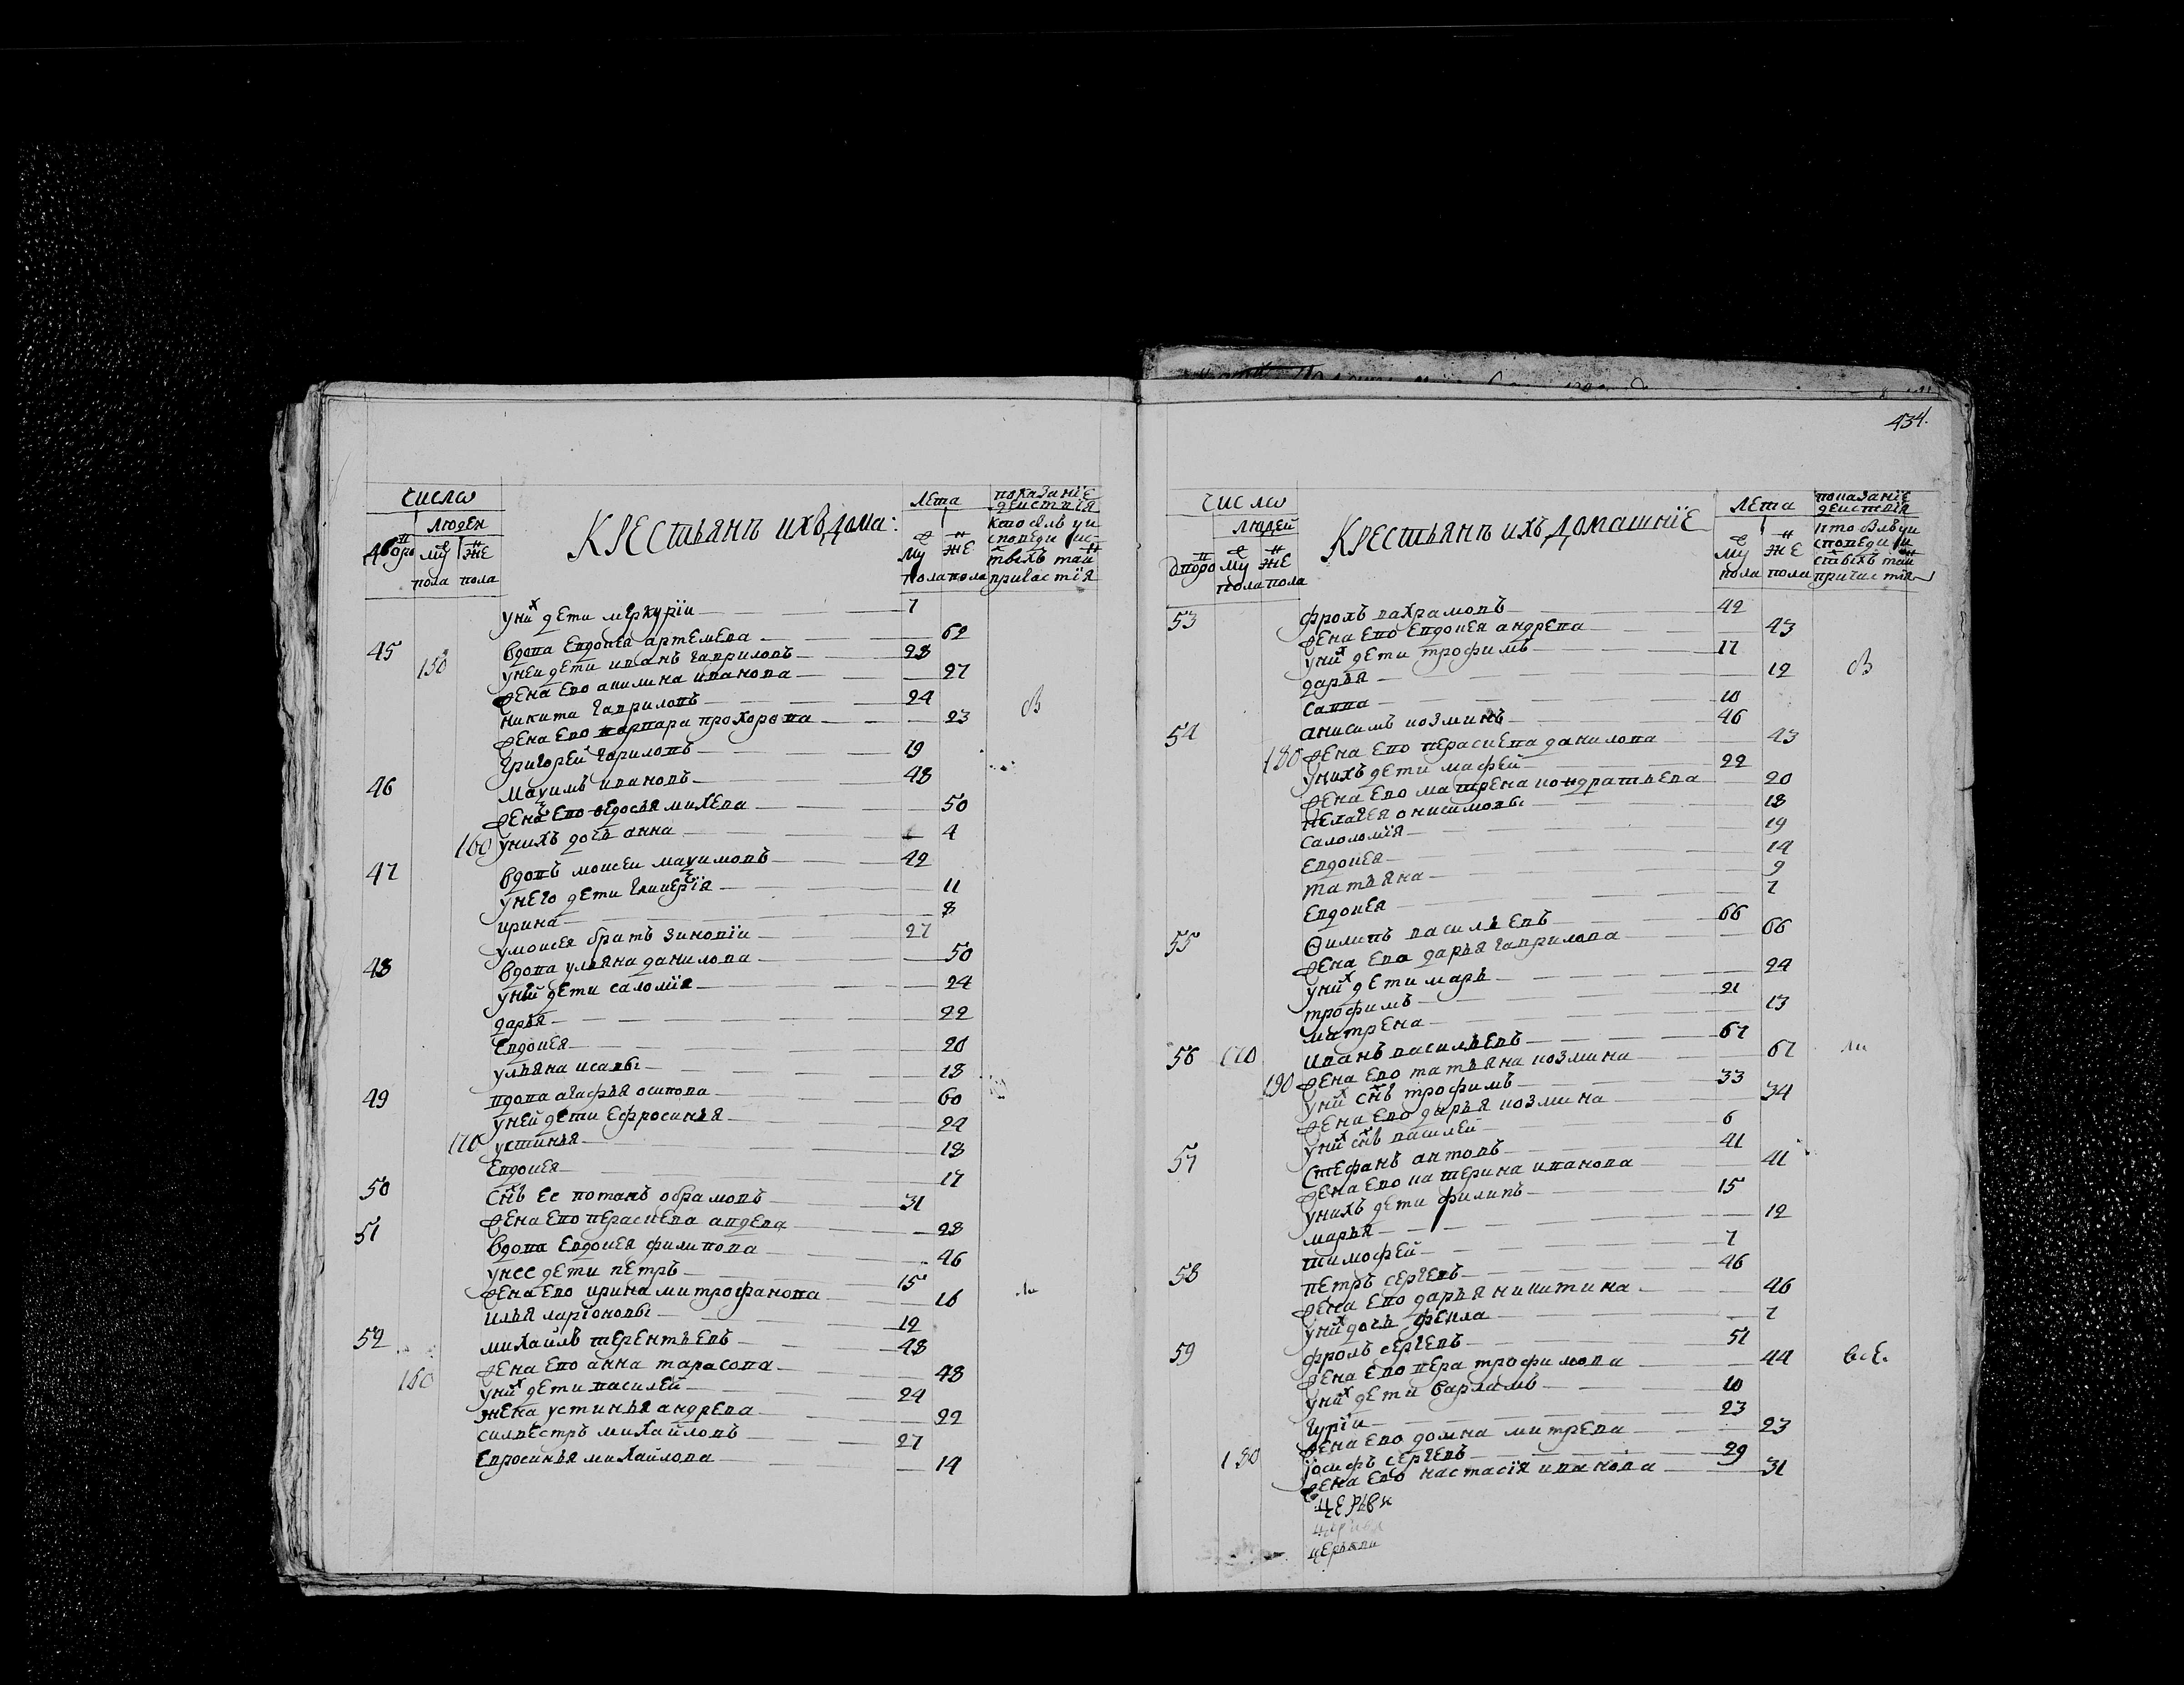 434.
числѡ
людей
дворо му же
пола пола
Крестьянъ ихъ дома:
лета
му же
пола пола
показанїе
действїя
кто былъ у и
споведи и с
тыхъ тайн
причастїя
у них дети меркурїи 7
45 вдова евдокея артемева 62
150 у неи дети иванъ гавриловъ 28
жена ево акилина иванова 27
никита гавриловъ 24
жена ево варвара прохорова 23
григорей гариловъ 19
46 маѯимъ ивановъ 48
жена ево ѳедосья михева 50
160 у нихъ дочь анна 4
47 вдовъ моисеи маѯимовъ 42
у него дети гликерїя 11
ирина 8
у моисея братъ зиновїи 27
48 вдова ульяна данилова 50
у ней дети саломїя 24
дарья 22
евдокея 20
ульяна исавы 18
49 вдова агафья осипова 60
у ней дети ефросинья 24
170 устинья 18
евдокея 17
50 снъ ее потапъ обрамовъ 31
жена ево перасцева андева 28
51 вдова евдокея филипова 46
у нее дети петръ 15
жена ево ирина митрофанова 16
илья ларїоновы 12
52 михайлъ терентьевъ 48
жена ево анна тарасова 48
160 у них дети василей 24
жена устинья андрева 22
силвестръ михайловъ 27
евросинья михайлова 14
числѡ
людей
дворо му же
пола пола
Крестьянъ ихъ домашнїе
лета
му же
пола пола
показанїе
действїя
кто былъ у и
споведи и
стыхъ тайн
причастїя
53 фролъ вахрамовъ 42
жена ево евдокея андрева 43
у них дети трофимъ 17
дарья 12
савва 10
54 анисимъ козминъ 46
180 жена ево перасцева данилова 43
у нихъ дети мафей 22
жена ево матрена кондратьева 20
пелагея онисимовы 18
саломомїя 19
евдокея 14
татьяна 9
евдокея 7
55 Ѳилипъ васильевъ 66
жена ево дарья гаврилова 66
у них дети марь 24
трофимъ 21
матрена 13
56 170 иванъ васильевъ 67
190 жена ево татьяна козмина 67
у них снъ трофимъ 33
жена ево дарья козмина 34
у них снъ василей 6
57 стефанъ антовъ 41
жена ево катерина иванова 41
у нихъ дети филипъ 15
марья 12
тимофей 7
58 петръ сергевъ 46
жена ево дарья никитина 46
у них дочь фекла 7
59 фролъ сергевъ 51
жена ево вера трофимова 44 всѣ
у них дети варламъ 10
гурїи 23
жена ево домна митрева 23
180 їосифъ сергевъ 29
жена ево настасїя иванова 31
церкви
церкви